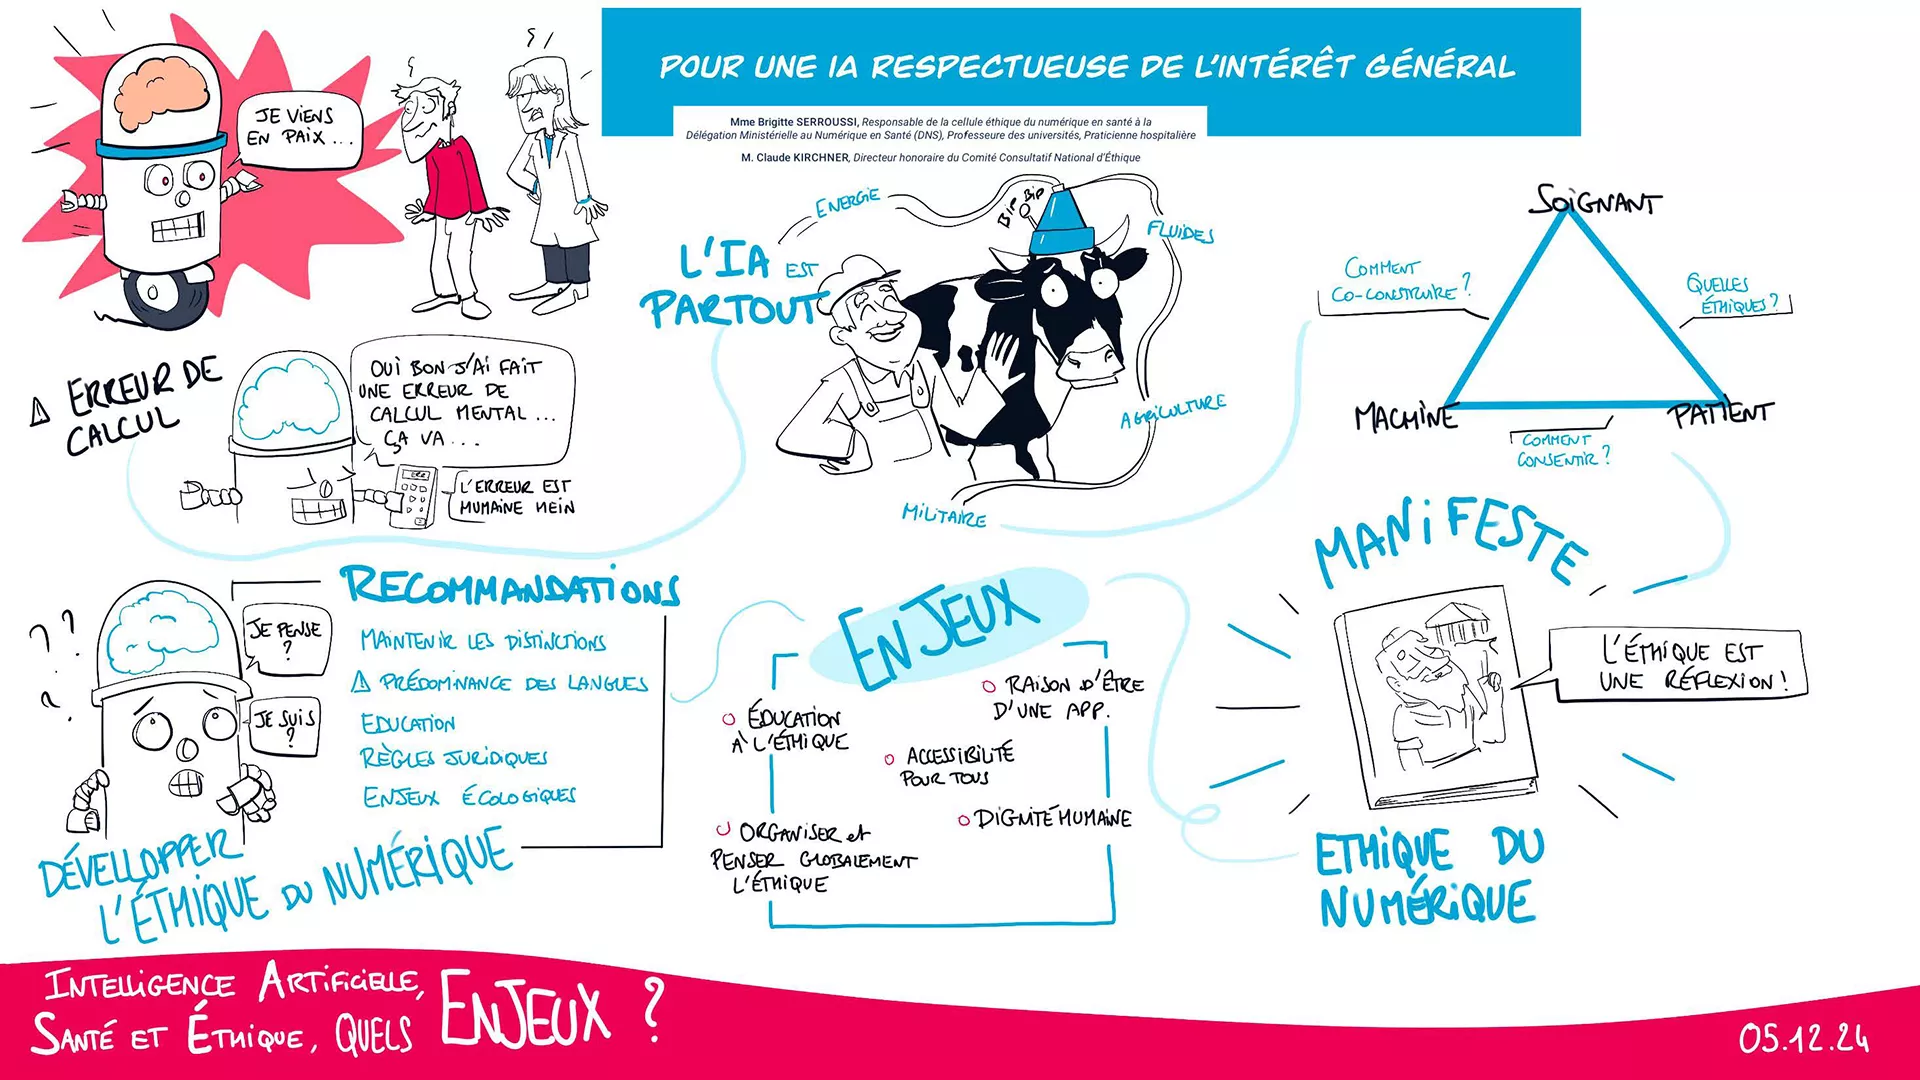 POUR UNE IA RESPECTUEUSE DE L'INTÉRÊT GÉNÉRAL
Mme Brigitte SERROUSSI, Responsable de la cellule éthique du numérique en santé à la
Délégation Ministérielle au Numérique en Santé (DNS), Professeure des universités, Praticienne hospitalière
M. Claude KIRCHNER, Directeur honoraire du Comité Consultatif National d'Éthique
JE VIENS
EN PAIX...
⚠ ERREUR DE
CALCUL
OUI BON J'AI FAIT
UNE ERREUR DE
CALCUL MENTAL...
ÇA VA...
L'ERREUR EST
HUMAINE HEIN
L'IA EST
PARTOUT
ENERGIE
BIP BIP
FLUIDES
AGRICULTURE
MILITAIRE
SOIGNANT
COMMENT
CO-CONSTRUIRE?
QUELLES
ÉTHIQUES?
MACHINE
PATIENT
COMMENT
CONSENTIR?
? ? ?
JE PENSE
?
JE SUIS
?
RECOMMANDATIONS
MAINTENIR LES DISTINCTIONS
⚠ PRÉDOMINANCE DES LANGUES
EDUCATION
RÈGLES JURIDIQUES
ENJEUX ÉCOLOGIQUES
DÉVELLOPPER
L'ÉTHIQUE DU NUMÉRIQUE
ENJEUX
RAISON D'ÊTRE
D'UNE APP.
ÉDUCATION
À L'ÉTHIQUE
ACCESSIBILITÉ
POUR TOUS
DIGNITÉ HUMAINE
ORGANISER et
PENSER GLOBALEMENT
L'ÉTHIQUE
MANIFESTE
L'ÉTHIQUE EST
UNE RÉFLEXION!
ETHIQUE DU
NUMÉRIQUE
INTELLIGENCE ARTIFICIELLE,
SANTÉ ET ÉTHIQUE, QUELS ENJEUX ?
05.12.24